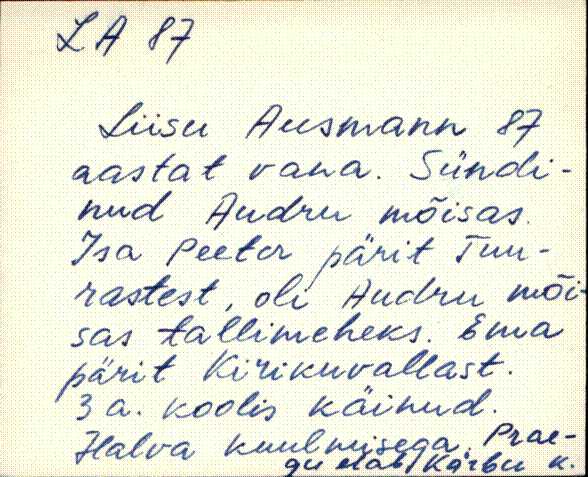 LA 87
Liisu Ausmann 87
aastat vana. Sündi-
nud Audru mõisas.
Isa Peeter pärit Tuu-
rastest, oli Audru mõi-
sas tallimeheks. Ema
pärit Kirikuvallast.
3 a. koolis käinud.
Halva kuulmisega. Prae-
gu elab Kärbu k.